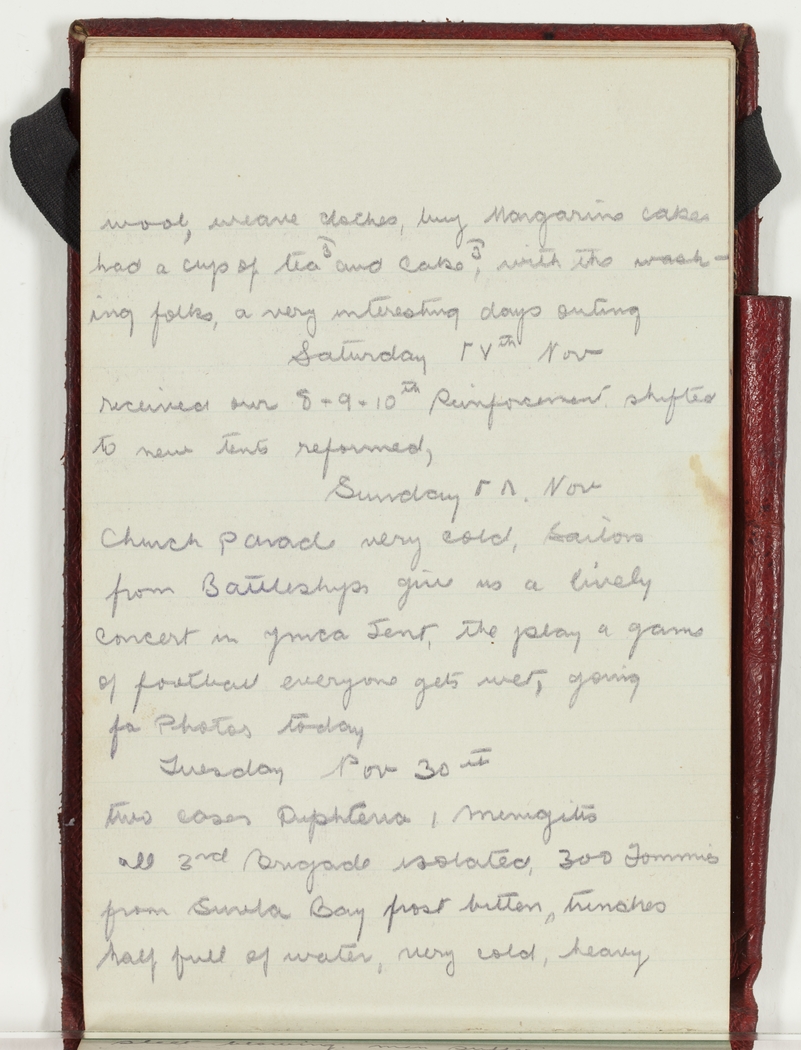 wool, weave cloches, buy Margarine cakes
had a cup of tea 3 and Cake 3, with the wash-
ing folks, a very interesting days outing
Saturday Nov
received our 8+9+10th Reinforcement shifted
to new tents reformed,
Sunday Nov
Church parade very cold, Sailors
from Battleships give us a lively
concert in Ymca Tent, the play a game
of football everyone gets wet, going
fo Photos today
Tuesday Nov 30th
two cases Diphteria 1 Menigitis
all 3rd Brigade isolated, 300 Tommies
from Suvla Bay frost bitten, trenches
half full of water, very cold, heavy